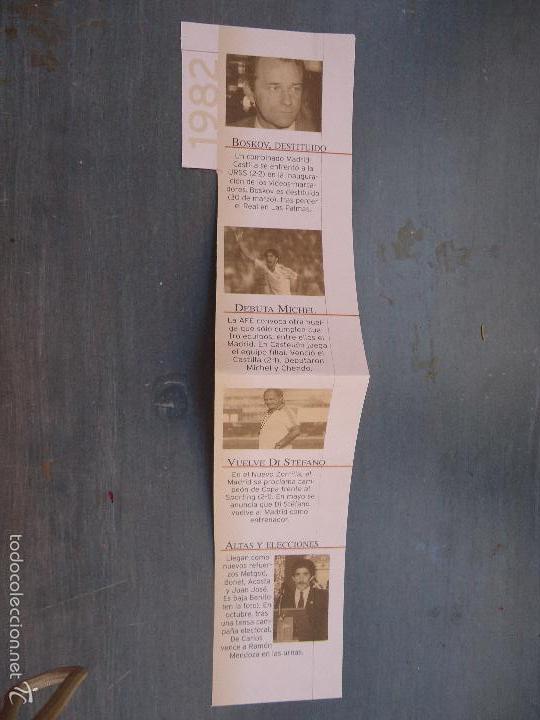 1982
BOSKOV, DESTITUIDO
Un combinado Madrid-
Castilla se enfrentó a la
URSS (2-2) en la inaugura-
ción de los videosmarca-
dores. Boskov es destituido
(30 de marzo), tras perder
el Real en Las Palmas.
DEBUTA MICHEL
La AFE convoca otra huel-
ga que sólo cumplen cua-
tro equipos, entre ellos el
Madrid. En Castellón juega
el equipo filial. Venció el
Castilla (2-1). Debutaron
Michel y Chendo.
VUELVE DI STÉFANO
En el Nuevo Zorrilla, el
Madrid se proclama cam-
peón de Copa frente al
Sporting (2-1). En mayo se
anuncia que Di Stéfano
vuelve al Madrid como
entrenador.
ALTAS Y ELECCIONES
Llegan como
nuevos refuer-
zos Metgod,
Bonet, Acosta
y Juan José.
Es baja Benito
(en la foto). En
octubre, tras
una tensa cam-
paña electoral,
De Carlos
vence a Ramón
Mendoza en las urnas.
todocoleccion.net